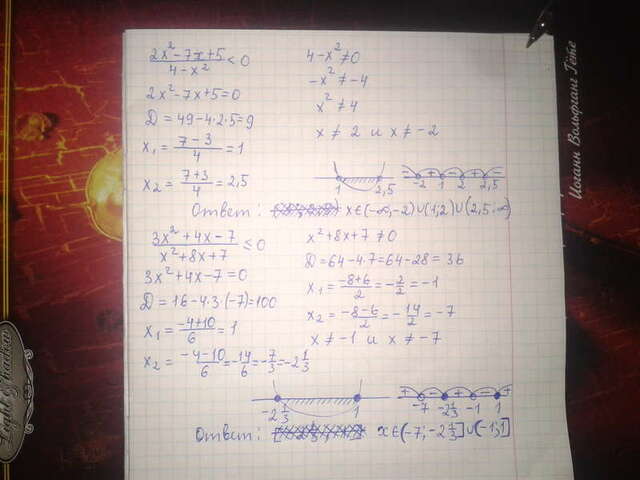 Иоганн Вольфганг Гёте
(2x²-7x+5)/(4-x²) < 0
2x²-7x+5=0
D=49-4·2·5=9
x₁=(7-3)/4=1
x₂=(7+3)/4=2,5
4-x²≠0
-x²≠-4
x²≠4
x≠2 и x≠-2
1 2,5
- + - + -
-2 1 2 2,5
Ответ: x∈(-∞;-2)∪(1;2)∪(2,5;∞)
(3x²+4x-7)/(x²+8x+7) ≤0
3x²+4x-7=0
D=16-4·3·(-7)=100
x₁=(-4+10)/6=1
x₂=(-4-10)/6=-14/6=-7/3=-2 1/3
x²+8x+7≠0
D=64-4·7=64-28=36
x₁=(-8+6)/2=-2/2=-1
x₂=(-8-6)/2=-14/2=-7
x≠-1 и x≠-7
-2 1/3 1
+ - + - +
-7 -2 1/3 -1 1
Ответ: x∈(-7;-2 1/3]∪(-1;1]